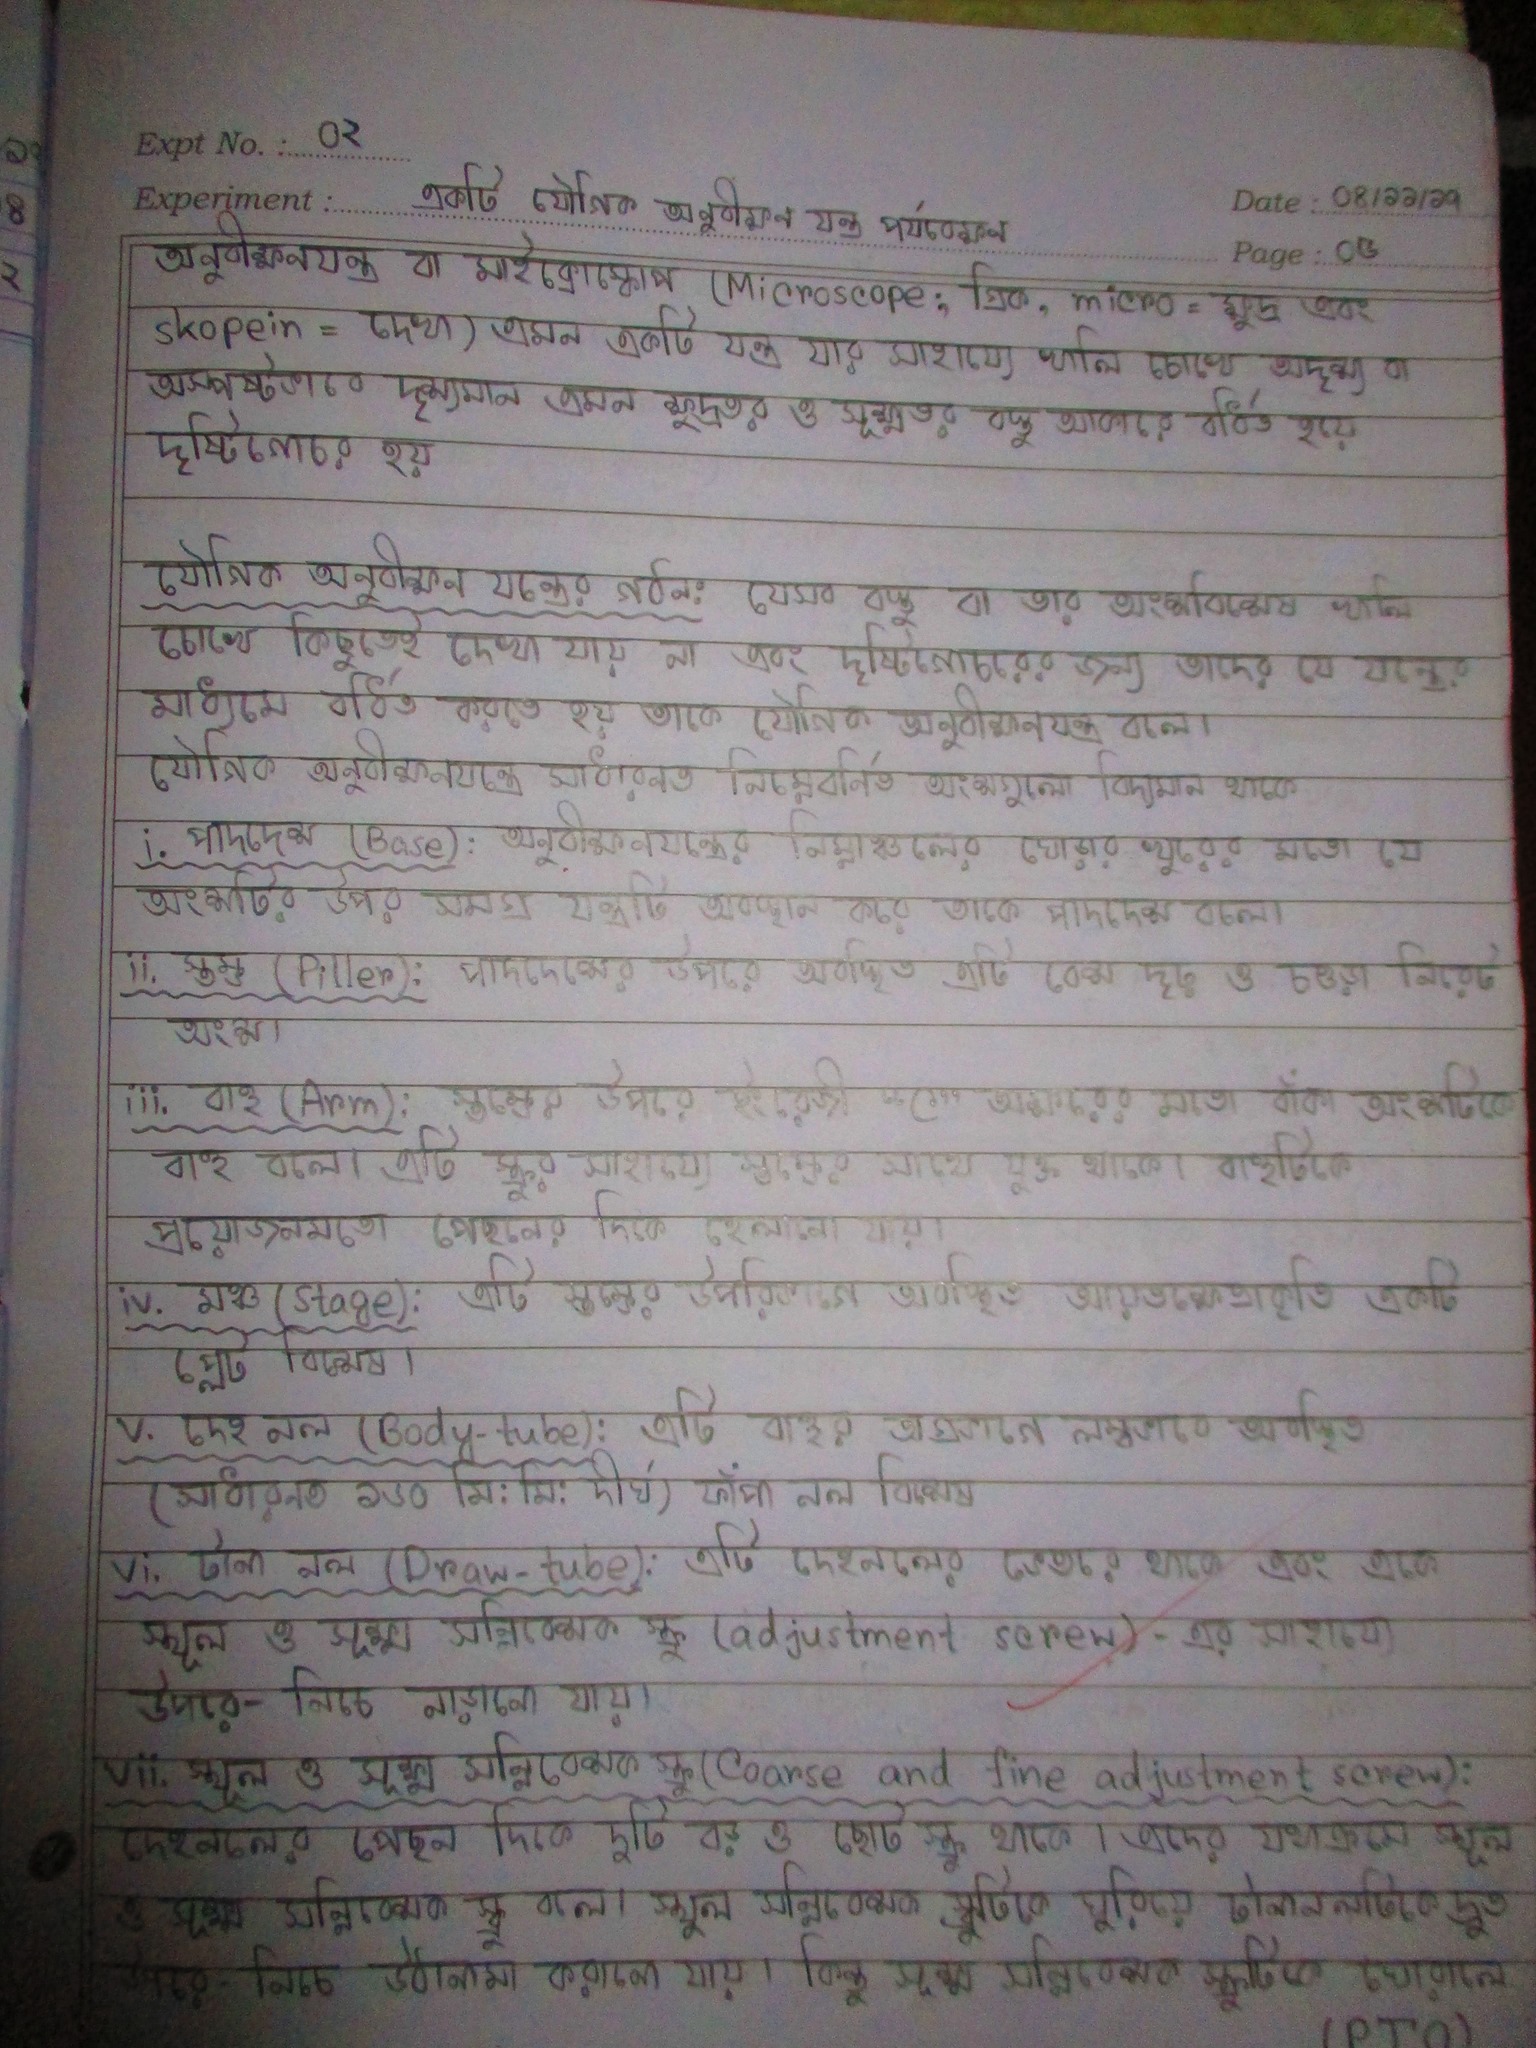 Expt No. : ০২
Experiment : একটি যৌগিক অনুবীক্ষন যন্ত্র পর্যবেক্ষন
Date : ০৪/১১/১৭
Page : ০৫
অনুবীক্ষনযন্ত্র বা মাইক্রোস্কোপ (Microscope; গ্রিক, micro = ক্ষুদ্র এবং
skopein = দেখা) এমন একটি যন্ত্র যার সাহায্যে খালি চোখে অদৃশ্য বা
অস্পষ্টভাবে দৃশ্যমান এমন ক্ষুদ্রতর ও সূক্ষ্মতর বস্তু আকারে বর্ধিত হয়ে
দৃষ্টিগোচর হয়
যৌগিক অনুবীক্ষন যন্ত্রের গঠন: যেসব বস্তু বা তার অংশবিশেষ খালি
চোখে কিছুতেই দেখা যায় না এবং দৃষ্টিগোচরের জন্য তাদের যে যন্ত্রের
মাধ্যমে বর্ধিত করতে হয় তাকে যৌগিক অনুবীক্ষনযন্ত্র বলে।
যৌগিক অনুবীক্ষনযন্ত্রে সাধারনত নিম্নেবর্নিত অংশগুলো বিদ্যমান থাকে
i. পাদদেশ (Base): অনুবীক্ষনযন্ত্রের নিম্নাঞ্চলের ঘোড়ার খুরের মতো যে
অংশটির উপর সমগ্র যন্ত্রটি অবস্থান করে তাকে পাদদেশ বলে।
ii. স্তম্ভ (Piller): পাদদেশের উপরে অবস্থিত এটি বেশ দৃঢ় ও চওড়া নিরেট
অংশ।
iii. বাহু (Arm): স্তম্ভের উপরে ইংরেজী "C" অক্ষরের মতো বাঁকা অংশটিকে
বাহু বলে। এটি স্ক্রুর সাহায্যে স্তম্ভের সাথে যুক্ত থাকে। বাহুটিকে
প্রয়োজনমতো পেছনের দিকে হেলানো যায়।
iv. মঞ্চ (Stage): এটি স্তম্ভের উপরিভাগে অবস্থিত আয়তক্ষেত্রাকৃতি একটি
প্লেট বিশেষ।
v. দেহ নল (Body-tube): এটি বাহুর অগ্রভাগে লম্বভাবে অবস্থিত
(সাধারনত ১৬০ মি: মি: দীর্ঘ) ফাঁপা নল বিশেষ
vi. টানা নল (Draw-tube): এটি দেহনলের ভেতরে থাকে এবং একে
স্থূল ও সূক্ষ্ম সন্নিবেশক স্ক্রু (adjustment screw)- এর সাহায্যে
উপরে- নিচে নাড়ানো যায়।
vii. স্থূল ও সূক্ষ্ম সন্নিবেশক স্ক্রু (Coarse and fine adjustment screw):
দেহনলের পেছন দিকে দুটি বড় ও ছোট স্ক্রু থাকে। এদের যথাক্রমে স্থূল
ও সূক্ষ্ম সন্নিবেশক স্ক্রু বলে। স্থূল সন্নিবেশক স্ক্রুটিকে ঘুরিয়ে টানানলটিকে দ্রুত
উপরে- নিচে উঠানামা করানো যায়। কিন্তু সূক্ষ্ম সন্নিবেশক স্ক্রুটিকে ঘোরালে
(PTO)